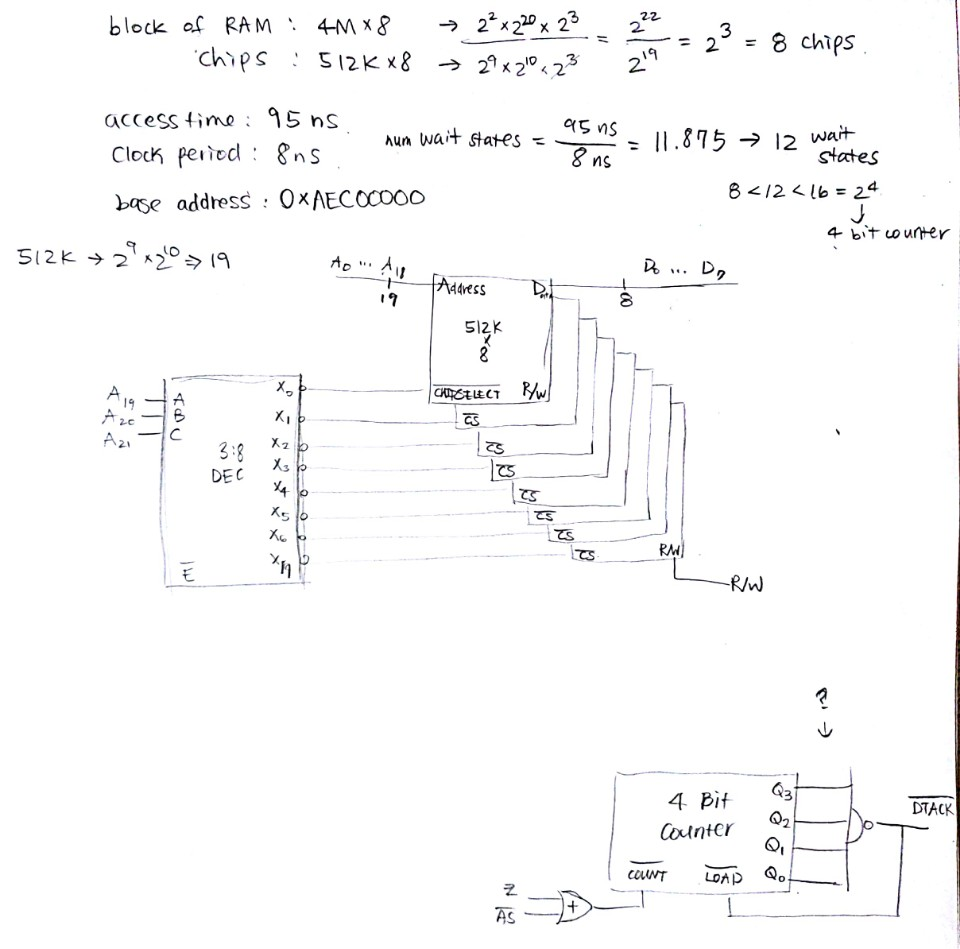 block of RAM : 4M x 8 → 2² x 2²⁰ x 2³ / 2⁹ x 2¹⁰ x 2³ = 2²² / 2¹⁹ = 2³ = 8 chips.
chips : 512K x 8 →
access time : 95 ns.
Clock period : 8ns
num wait states = 95 ns / 8 ns = 11.875 → 12 wait states
base address : 0XAEC00000
8 < 12 < 16 = 2⁴
↓
4 bit counter
512K → 2⁹ x 2¹⁰ ⇒ 19
A0 ... A18
19
D0 ... D7
8
Address
512K
x
8
CHIPSELECT R/W
A19 A
A20 B
A21 C
3:8
DEC
E̅
X0
X1
X2
X3
X4
X5
X6
X7
C̅S̅
C̅S̅
C̅S̅
C̅S̅
C̅S̅
C̅S̅
C̅S̅
R/W
R/W
?
↓
4 Bit
Counter
Q3
Q2
Q1
Q0
C̅O̅U̅N̅T̅ L̅O̅A̅D̅
D̅T̅A̅C̅K̅
Z
A̅S̅
+